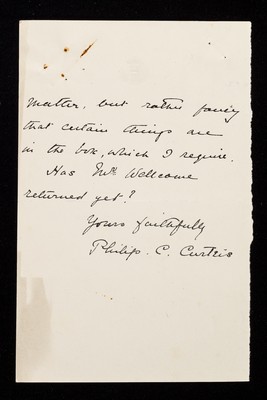 matter, but rather fancy
that certain things are
in the box, which I require.
Has Mr. Wellcome
returned yet?
Yours faithfully
Philip. C. Curteis